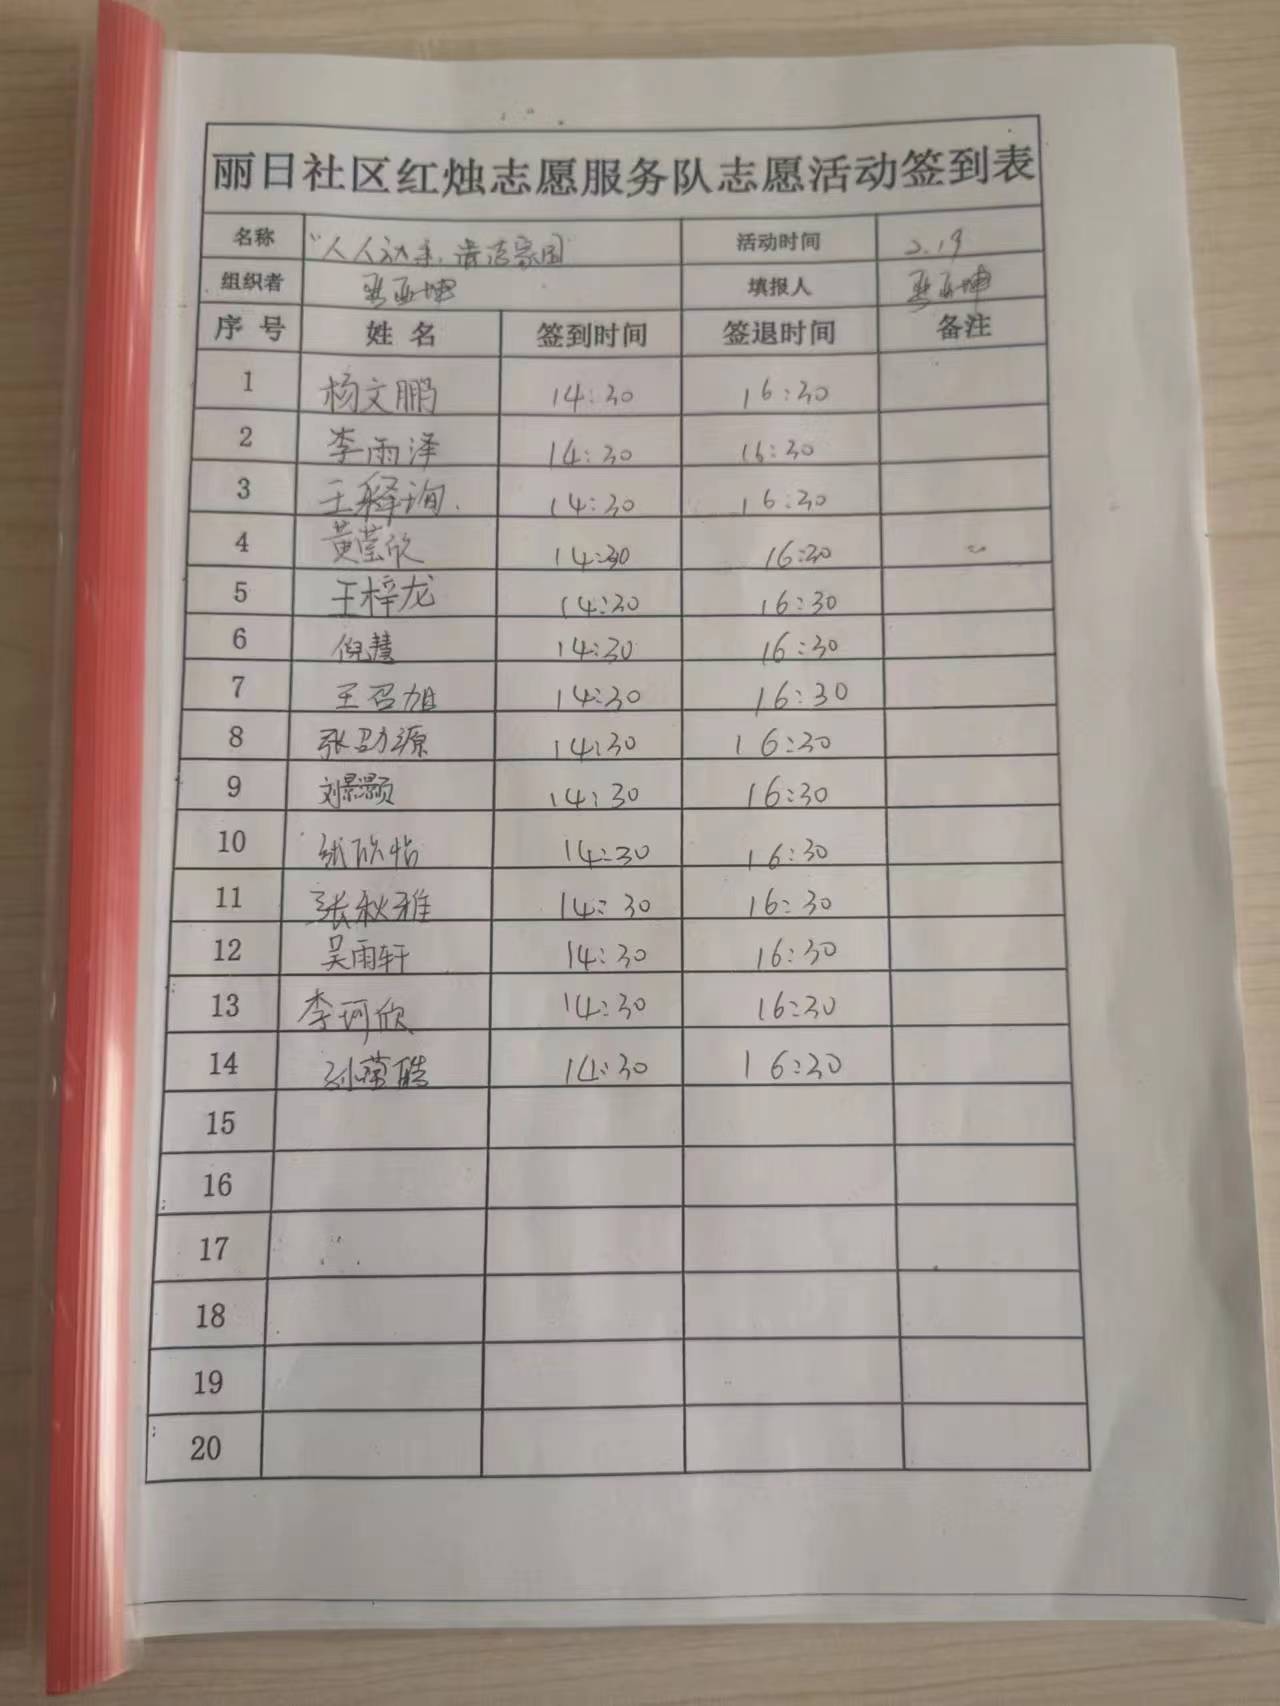 丽日社区红烛志愿服务队志愿活动签到表
名称 "人人动手,清洁家园" 活动时间 2.19
组织者 亚坤 填报人 亚坤
序号 姓名 签到时间 签退时间 备注
1 杨文鹏 14:30 16:30
2 李雨泽 14:30 16:30
3 王释询 14:30 16:30
4 黄莹欣 14:30 16:30
5 王梓龙 14:30 16:30
6 倪慧 14:30 16:30
7 王召旭 14:30 16:30
8 张劭源 14:30 16:30
9 刘景灏 14:30 16:30
10 张欣怡 14:30 16:30
11 张秋雅 14:30 16:30
12 吴雨轩 14:30 16:30
13 李珂欣 14:30 16:30
14 孙荣皓 14:30 16:30
15
16
17
18
19
20